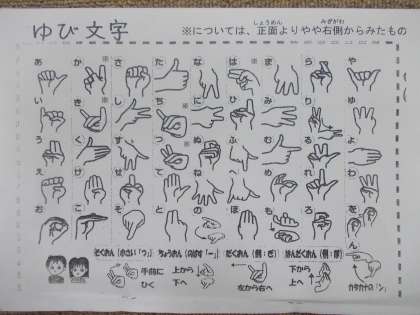 ゆび文字
※については、正面よりやや右側からみたもの
しょうめん みぎがわ
あ か ※ さ た な は ※ ま や ら わ
い き ※ し ち ※ に ひ み り
う く す つ ※ ぬ ふ む ゆ る
え け せ て ね へ め れ を
お こ そ と の ほ も よ ろ ん
そくおん(小さい「っ」) ちょうおん(のばす「ー」) だくおん(例:ざ) はんだくおん(例:ぽ)
手前に
ひく
上から
下へ
左から右へ
下から
上へ
カタカナの「ン」